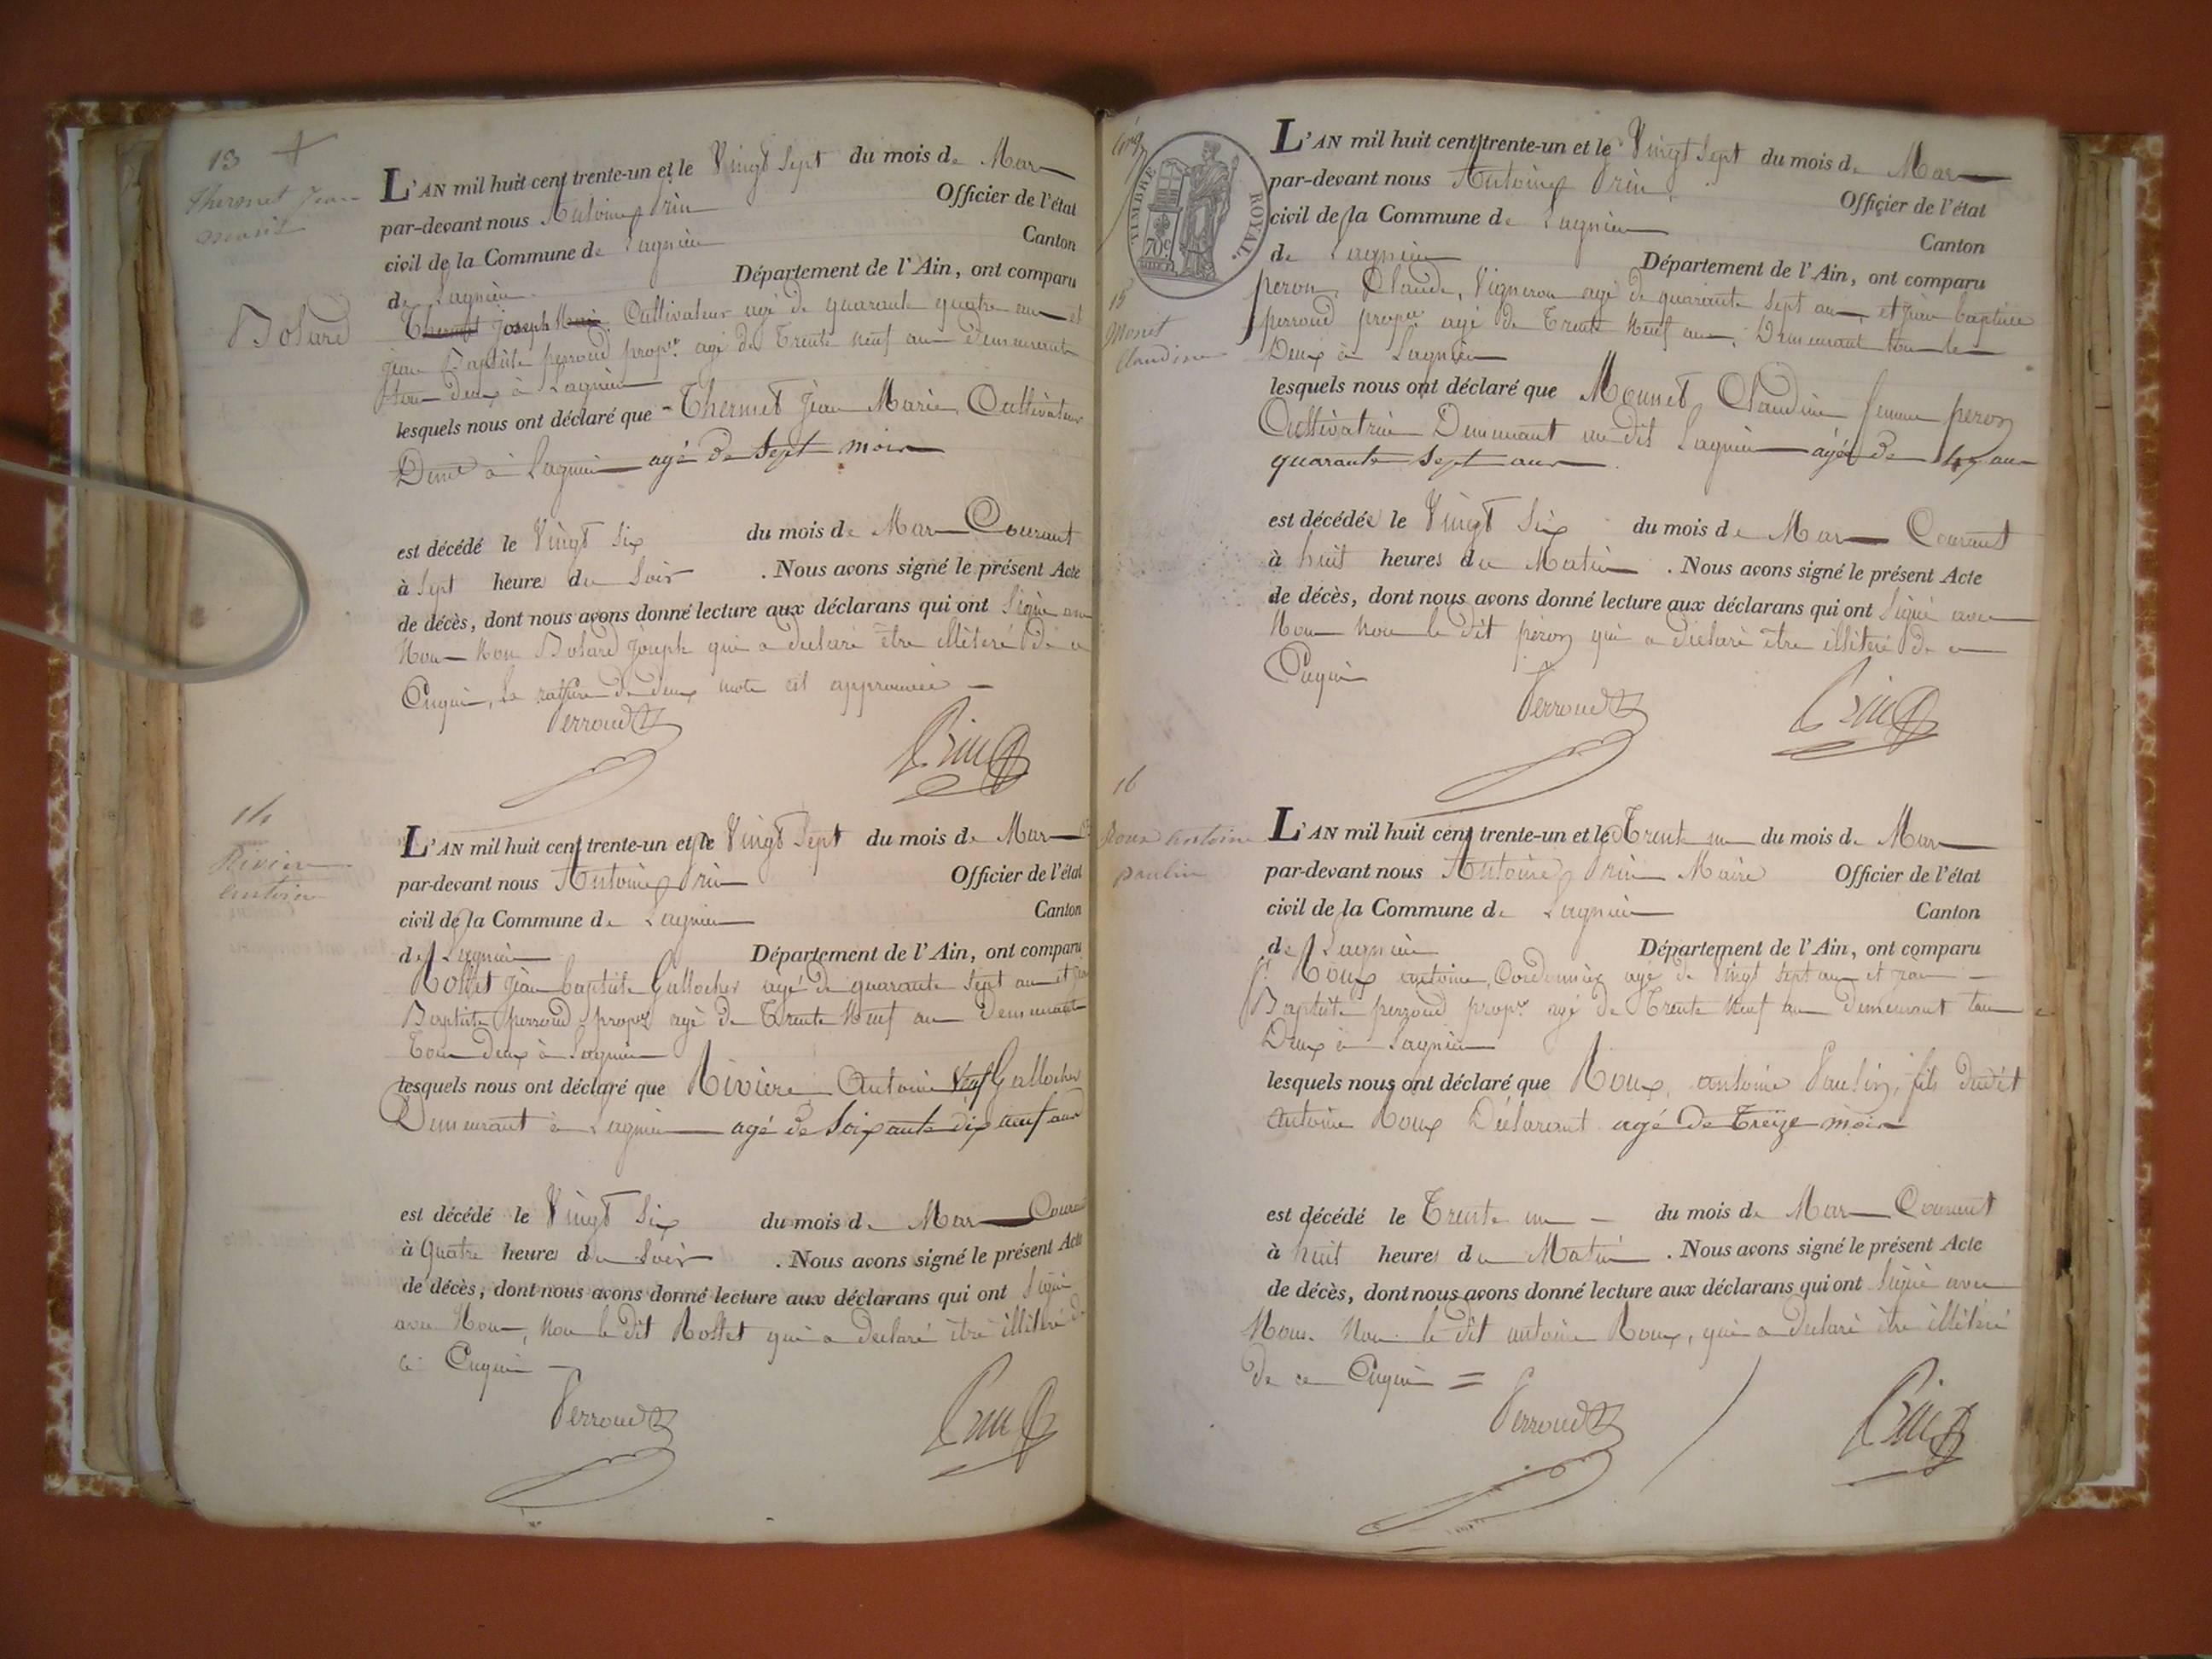 13 +
Thermet Jean
marie
L'AN mil huit cent trente-un et le Vingt Sept du mois de Mars
par-devant nous Antoine Prin Officier de l'état
civil de la Commune de Lagnieu Canton
de Lagnieu Département de l'Ain, ont comparu
Bolard
Thermet Joseph Cultivateur agé de quarante quatre ans et
jean Baptiste perroud propre agé de Trente Neuf ans Demeurant
tous Deux à Lagnieu
lesquels nous ont déclaré que Thermet Jean Marie, Cultivateur
Demt à Lagnieu agé de Sept mois
est décédé le Vingt Six du mois de Mars Courant
à Sept heures du Soir . Nous avons signé le présent Acte
de décès, dont nous avons donné lecture aux déclarans qui ont Signé avec
Nous Non Bolard Joseph qui a declaré être illiteré de ce
Enquis, la rature de deux mots est approuvée
Perroud
Prin
14
Rivière
Antoine
L'AN mil huit cent trente-un et le Vingt Sept du mois de Mars
par-devant nous Antoine Prin Officier de l'état
civil de la Commune de Lagnieu Canton
de Lagnieu Département de l'Ain, ont comparu
Rollet Jean baptiste Gallocher agé de quarante Sept ans et jean
Baptiste perroud propre agé de Trente Neuf ans Demeurant
Tous deux à Lagnieu
lesquels nous ont déclaré que Rivière Antoine Veuf Gallocher
Demeurant à Lagnieu agé de Soixante dix neuf ans
est décédé le Vingt Six du mois de Mars Courant
à Quatre heures du Soir . Nous avons signé le présent Acte
de décès, dont nous avons donné lecture aux déclarans qui ont Signé
avec Nous, Non le dit Rollet qui a declaré être illiteré de
ce Enquis
Perroud
Prin
TIMBRE ROYAL
70c
L'AN mil huit cent trente-un et le Vingt Sept du mois de Mars
par-devant nous Antoine Prin Officier de l'état
civil de la Commune de Lagnieu Canton
de Lagnieu Département de l'Ain, ont comparu
15
Monet
Claudine
peron Claude, Vigneron agé de quarante Sept ans et jean baptiste
perroud propre agé de Trente Neuf ans, Demeurant tous les
Deux à Lagnieu
lesquels nous ont déclaré que Monnet Claudine femme peron
Cultivatrice Demeurant au dit Lagnieu agée de 47 ans
quarante sept ans
est décédée le Vingt Six du mois de Mars Courant
à huit heures du Matin . Nous avons signé le présent Acte
de décès, dont nous avons donné lecture aux déclarans qui ont Signé avec
Nous Non le dit peron qui a declaré être illiteré de ce
Enquis
Perroud
Prin
16
Roux antoine
paulin
L'AN mil huit cent trente-un et le Trente un du mois de Mars
par-devant nous Antoine Prin Maire Officier de l'état
civil de la Commune de Lagnieu Canton
de Lagnieu Département de l'Ain, ont comparu
Roux antoine, Cordonnier agé de Vingt sept ans et jean
Baptiste perroud propre agé de Trente Neuf ans Demeurant tous
Deux à Lagnieu
lesquels nous ont déclaré que Roux, antoine Paulin, fils dudit
Antoine Roux Déclarant agé de Treize mois
est décédé le Trente un du mois de Mars Courant
à huit heures du Matin . Nous avons signé le présent Acte
de décès, dont nous avons donné lecture aux déclarans qui ont Signé avec
Nous. Non le dit antoine Roux, qui a declaré être illiteré
de ce Enquis =
Perroud
Prin